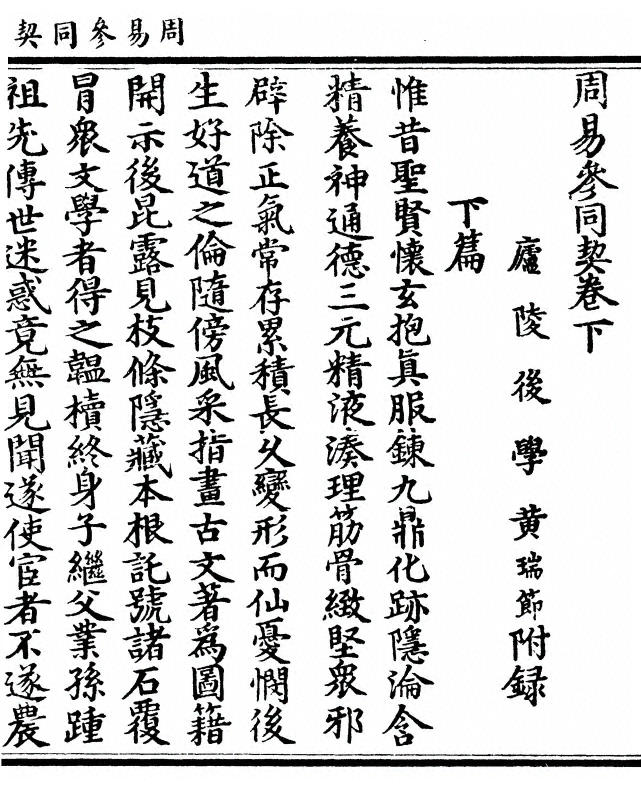 周易參同契
周易參同契卷下
廬陵後學黄瑞節附録
下篇
惟昔聖賢懷玄抱真服鍊九鼎化跡隱淪含
精養神通德三元精液湊理筋骨緻堅衆邪
辟除正氣常存累積長久變形而仙憂憫後
生好道之倫隨傍風采指畫古文著爲圖籍
開示後昆露見枝條隱藏本根託號諸石覆
冒衆文學者得之韞櫝終身子繼父業孫踵
祖先傳世迷惑竟無見聞遂使宦者不遂農